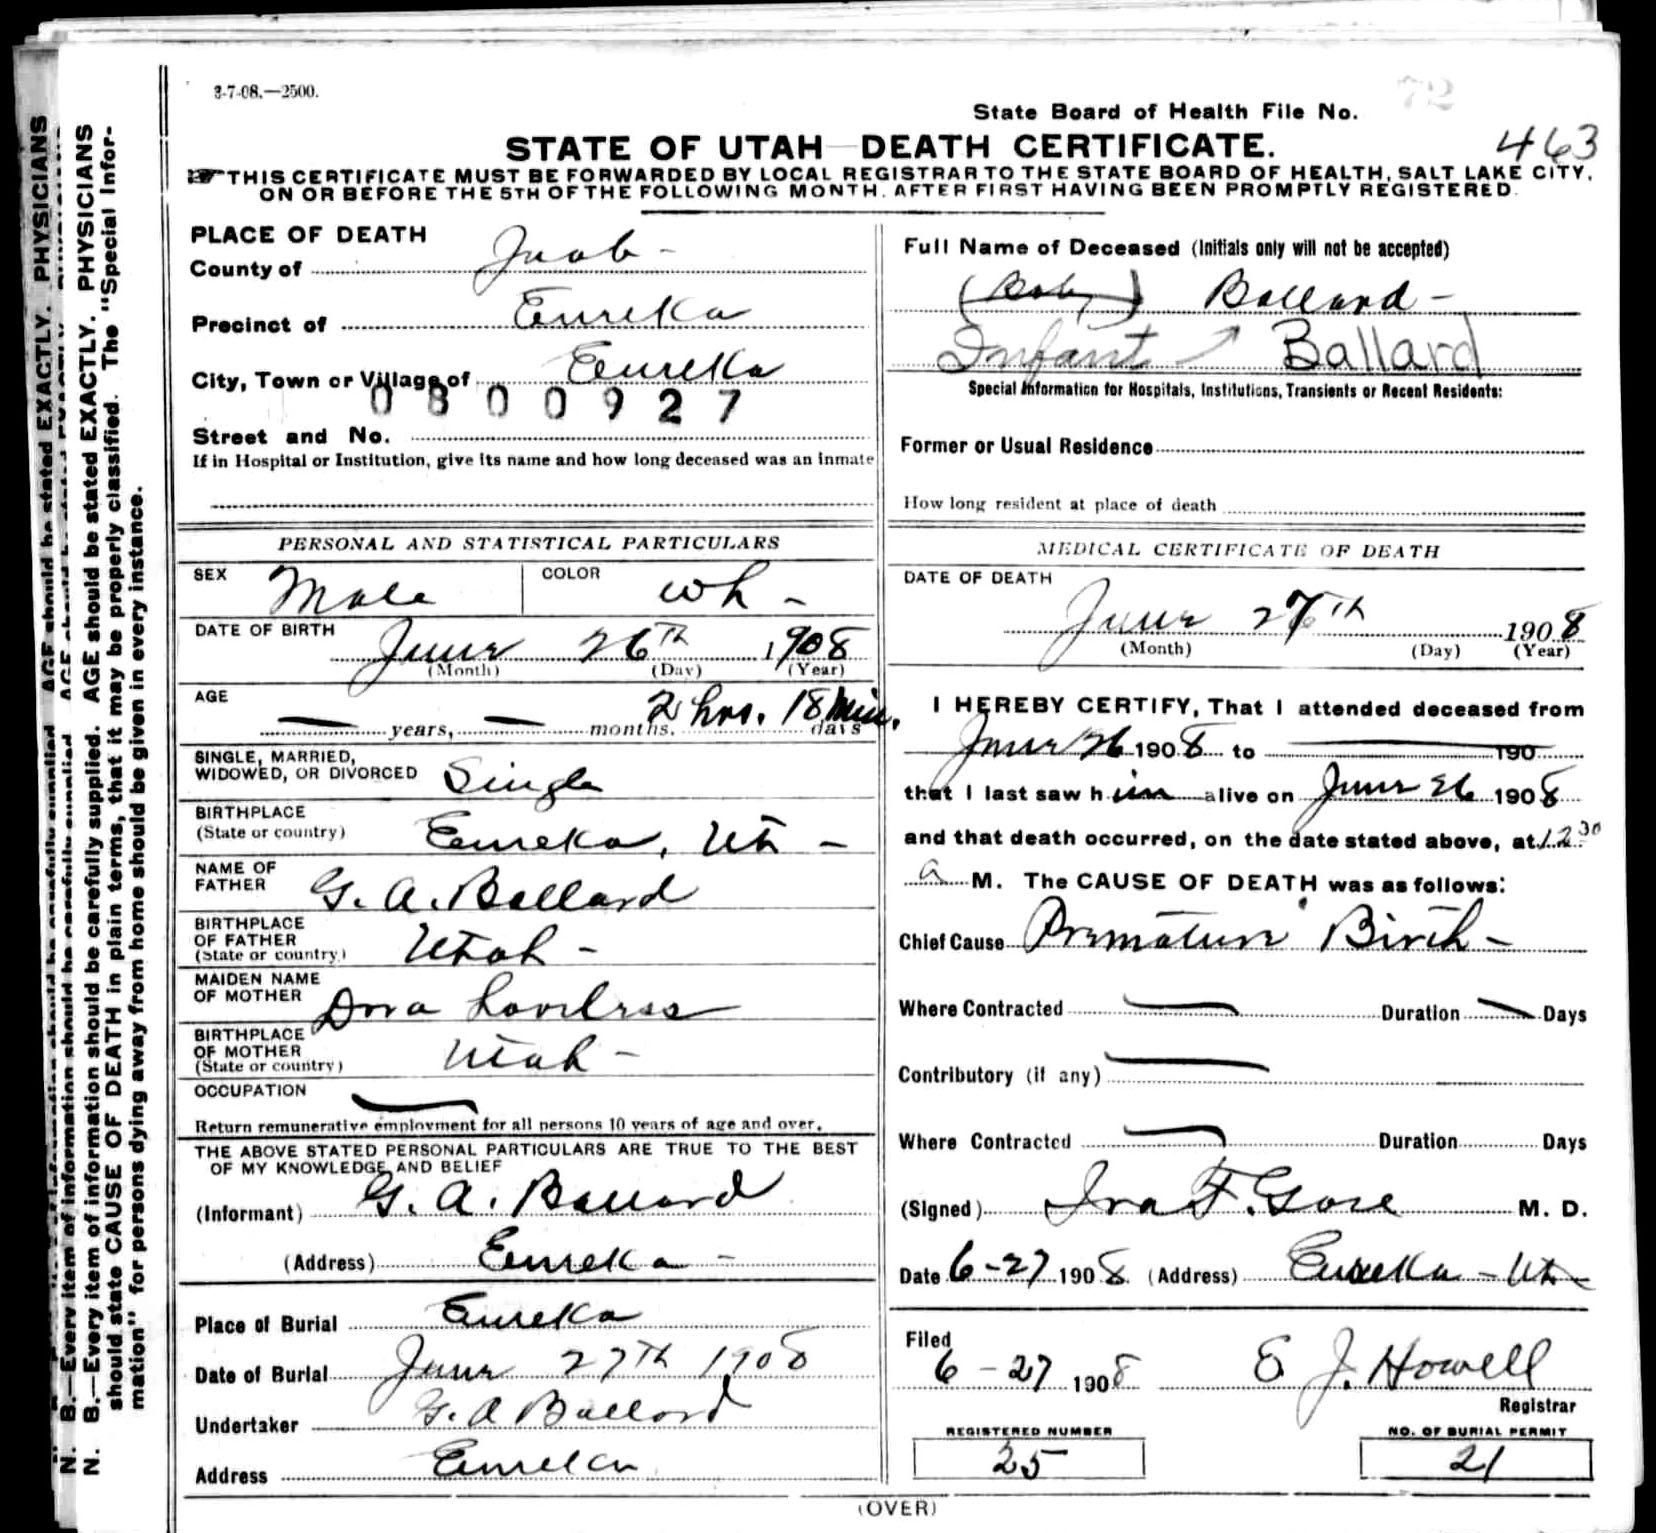 3-7-08.—2500.
72
State Board of Health File No.
463
STATE OF UTAH—DEATH CERTIFICATE.
THIS CERTIFICATE MUST BE FORWARDED BY LOCAL REGISTRAR TO THE STATE BOARD OF HEALTH, SALT LAKE CITY,
ON OR BEFORE THE 5TH OF THE FOLLOWING MONTH, AFTER FIRST HAVING BEEN PROMPTLY REGISTERED.
PLACE OF DEATH
County of Juab -
Precinct of Eureka
City, Town or Village of Eureka
0800927
Street and No.
If in Hospital or Institution, give its name and how long deceased was an inmate
PERSONAL AND STATISTICAL PARTICULARS
SEX Male COLOR wh -
DATE OF BIRTH June 26th 1908
(Month) (Day) (Year)
AGE 2 hrs. 18 Min.
years, months, days
SINGLE, MARRIED,
WIDOWED, OR DIVORCED Single
BIRTHPLACE
(State or country) Eureka, Ut -
NAME OF
FATHER G. A. Ballard
BIRTHPLACE
OF FATHER
(State or country) Utah -
MAIDEN NAME
OF MOTHER Dora Loveless
BIRTHPLACE
OF MOTHER
(State or country) Utah -
OCCUPATION
Return remunerative employment for all persons 10 years of age and over.
THE ABOVE STATED PERSONAL PARTICULARS ARE TRUE TO THE BEST
OF MY KNOWLEDGE AND BELIEF
(Informant) G. A. Ballard
(Address) Eureka -
Place of Burial Eureka
Date of Burial June 27th 1908
Undertaker G. A Ballard
Address Eureka
Full Name of Deceased (Initials only will not be accepted)
(Baby) Ballard -
Infant Ballard
Special Information for Hospitals, Institutions, Transients or Recent Residents:
Former or Usual Residence
How long resident at place of death
MEDICAL CERTIFICATE OF DEATH
DATE OF DEATH
June 27th 1908
(Month) (Day) (Year)
I HEREBY CERTIFY, That I attended deceased from
June 26 1908 to 190
that I last saw him alive on June 26 1908
and that death occurred, on the date stated above, at 12 30
a M. The CAUSE OF DEATH was as follows:
Chief Cause Premature Birth -
Where Contracted Duration Days
Contributory (if any)
Where Contracted Duration Days
(Signed) Ira F. Gose M. D.
Date 6-27 1908 (Address) Eureka - Ut
Filed
6-27 1908 E J. Howell
Registrar
REGISTERED NUMBER
25
NO. OF BURIAL PERMIT
21
(OVER)
N. B.—Every item of information should be carefully supplied. AGE should be stated EXACTLY. PHYSICIANS
should state CAUSE OF DEATH in plain terms, that it may be properly classified. The "Special Infor-
mation" for persons dying away from home should be given in every instance.